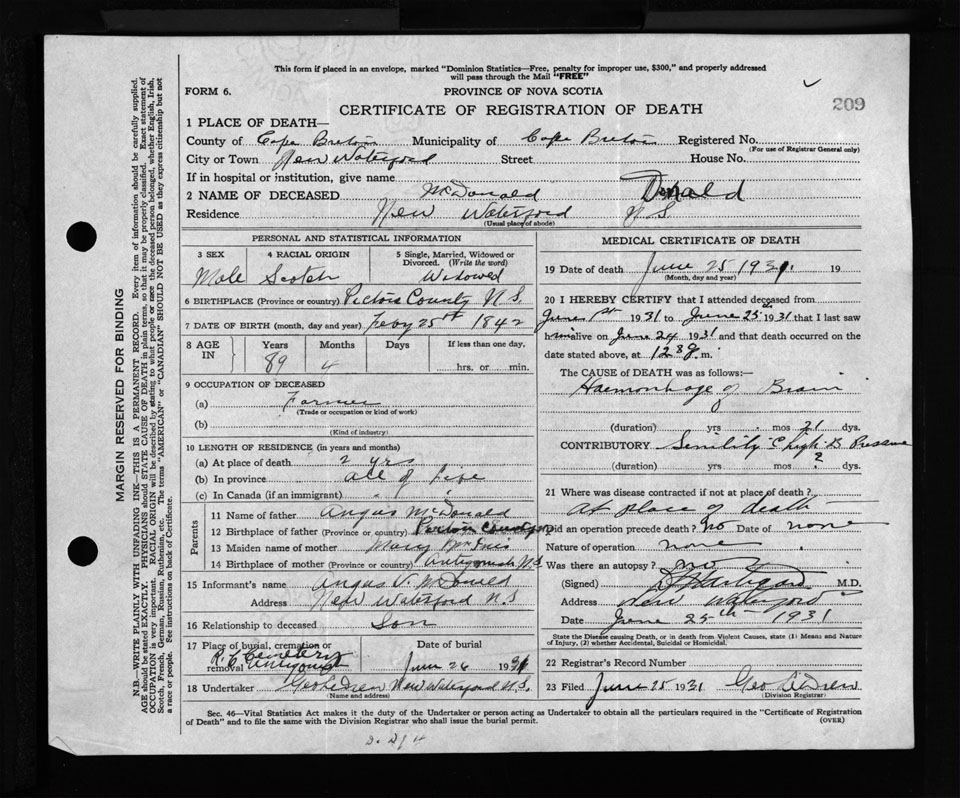 This form if placed in an envelope, marked "Dominion Statistics—Free, penalty for improper use, $300," and properly addressed
will pass through the Mail "FREE"
FORM 6.
PROVINCE OF NOVA SCOTIA
209
CERTIFICATE OF REGISTRATION OF DEATH
MARGIN RESERVED FOR BINDING
N.B.—WRITE PLAINLY WITH UNFADING INK—THIS IS A PERMANENT RECORD. Every item of information should be carefully supplied.
AGE should be stated EXACTLY. PHYSICIANS should STATE CAUSE OF DEATH in plain terms, so that it may be properly classified. Exact statement of
OCCUPATION is very important. RACIAL ORIGIN will be described by stating to what people or race the deceased person belonged, whether English, Irish,
Scotch, French, German, Russian, Ruthenian, etc. The terms "AMERICAN" or "CANADIAN" SHOULD NOT BE USED as they express citizenship but not
a race or people. See instructions on back of Certificate.
1 PLACE OF DEATH—
County of Cape Breton Municipality of Cape Breton Registered No.
(For use of Registrar General only)
City or Town New Waterford Street House No.
If in hospital or institution, give name
2 NAME OF DECEASED McDonald Donald
Residence New Waterford N S
(Usual place of abode)
PERSONAL AND STATISTICAL INFORMATION
3 SEX
Male
4 RACIAL ORIGIN
Scotch
5 Single, Married, Widowed or
Divorced. (Write the word)
Widowed
6 BIRTHPLACE (Province or country) Pictou County N.S.
7 DATE OF BIRTH (month, day and year) Feby 25th 1842
8 AGE
IN
Years
89
Months
4
Days
If less than one day,
hrs. or min.
9 OCCUPATION OF DECEASED
(a) Farmer
(Trade or occupation or kind of work)
(b)
(Kind of industry)
10 LENGTH OF RESIDENCE (in years and months)
(a) At place of death 2 yrs
(b) In province all of life
(c) In Canada (if an immigrant) " "
Parents
11 Name of father Angus McDonald
12 Birthplace of father (Province or country) Pictou County
13 Maiden name of mother Mary McInnis
14 Birthplace of mother (Province or country) Antigonish N.S.
15 Informant's name Angus V. McDonald
Address New Waterford N S
16 Relationship to deceased Son
17 Place of burial, cremation or
removal
R. C. Cemetery
Antigonish
Date of burial
June 26 1931
18 Undertaker Geo New Waterford N.S.
(Name and address)
MEDICAL CERTIFICATE OF DEATH
19 Date of death June 25 1931. 19
(Month, day and year)
20 I HEREBY CERTIFY that I attended deceased from
June 1st 1931 to June 25th 1931 that I last saw
him alive on June 24 1931 and that death occurred on the
date stated above, at m.
The CAUSE OF DEATH was as follows:—
Haemorrhage of Brain
(duration) yrs mos 21 dys.
CONTRIBUTORY Senility high B. Pressure
(duration) yrs mos ? dys.
21 Where was disease contracted if not at place of death?
At place of death
Did an operation precede death? No Date of none
Nature of operation none
Was there an autopsy? no
(Signed) M.D.
Address New Waterford
Date June 25th 1931
State the Disease causing Death, or in death from Violent Causes, state (1) Means and Nature
of Injury, (2) whether Accidental, Suicidal or Homicidal.
22 Registrar's Record Number
23 Filed June 25 1931 Geo
(Division Registrar)
Sec. 46—Vital Statistics Act makes it the duty of the Undertaker or person acting as Undertaker to obtain all the particulars required in the "Certificate of Registration
of Death" and to file the same with the Division Registrar who shall issue the burial permit.
(OVER)